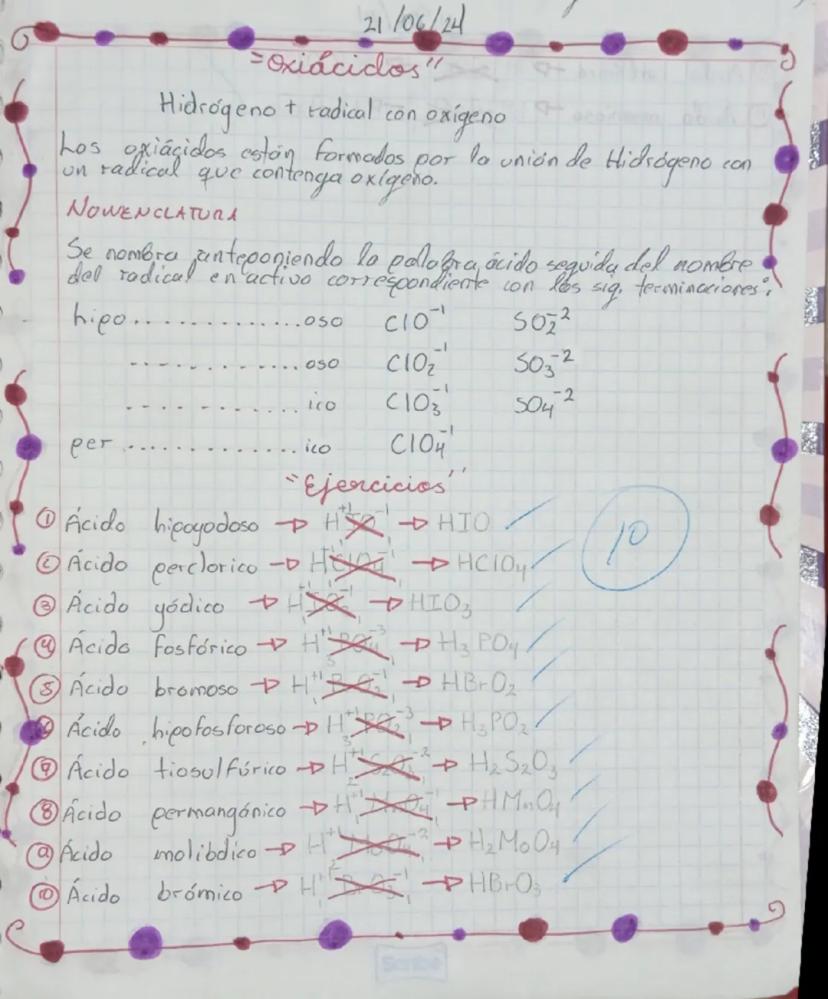 21/06/24
"Oxiácidos"
Hidrógeno + radical con oxígeno
Los oxiácidos están formados por la unión de Hidrógeno con
un radical que contenga oxígeno.
NOMENCLATURA
Se nombra anteponiendo la palabra ácido seguida del nombre
del radical en activo correspondiente con las sig. terminaciones:
hipo..............oso ClO⁻¹ SO₂⁻²
..............oso ClO₂⁻¹ SO₃⁻²
..............ico ClO₃⁻¹ SO₄⁻²
per..............ico ClO₄⁻¹
"Ejercicios"
① Ácido hipoyodoso → H⁺¹IO⁻¹ → HIO
② Ácido perclorico → HClO₄⁻¹ → HClO₄
③ Ácido yódico → H → HIO₃
④ Ácido fosfórico → H⁺¹PO₄⁻³ → H₃PO₄
⑤ Ácido bromoso → H⁺¹ → HBrO₂
⑥ Ácido hipofosforoso → H⁺¹PO₂⁻³ → H₃PO₂
⑦ Ácido tiosulfúrico → H⁺¹S₂O₃⁻² → H₂S₂O₃
⑧ Ácido permangánico → H⁺¹MnO₄⁻¹ → HMnO₄
⑨ Ácido molibdico → H⁺¹MoO₄⁻² → H₂MoO₄
⑩ Ácido brómico → H⁺¹BrO₃⁻¹ → HBrO₃
10
Scribe